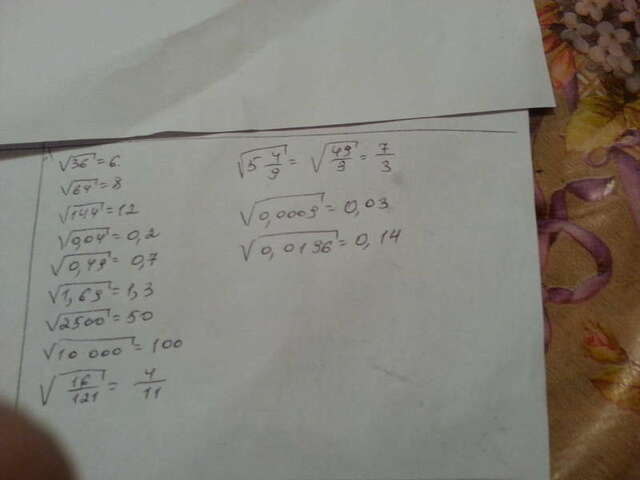 √36=6
√64=8
√144=12
√0,04=0,2
√0,49=0,7
√1,69=1,3
√2500=50
√10 000=100
√16/121=4/11
√5 4/9=√49/9=7/3
√0,0009=0,03
√0,0196=0,14